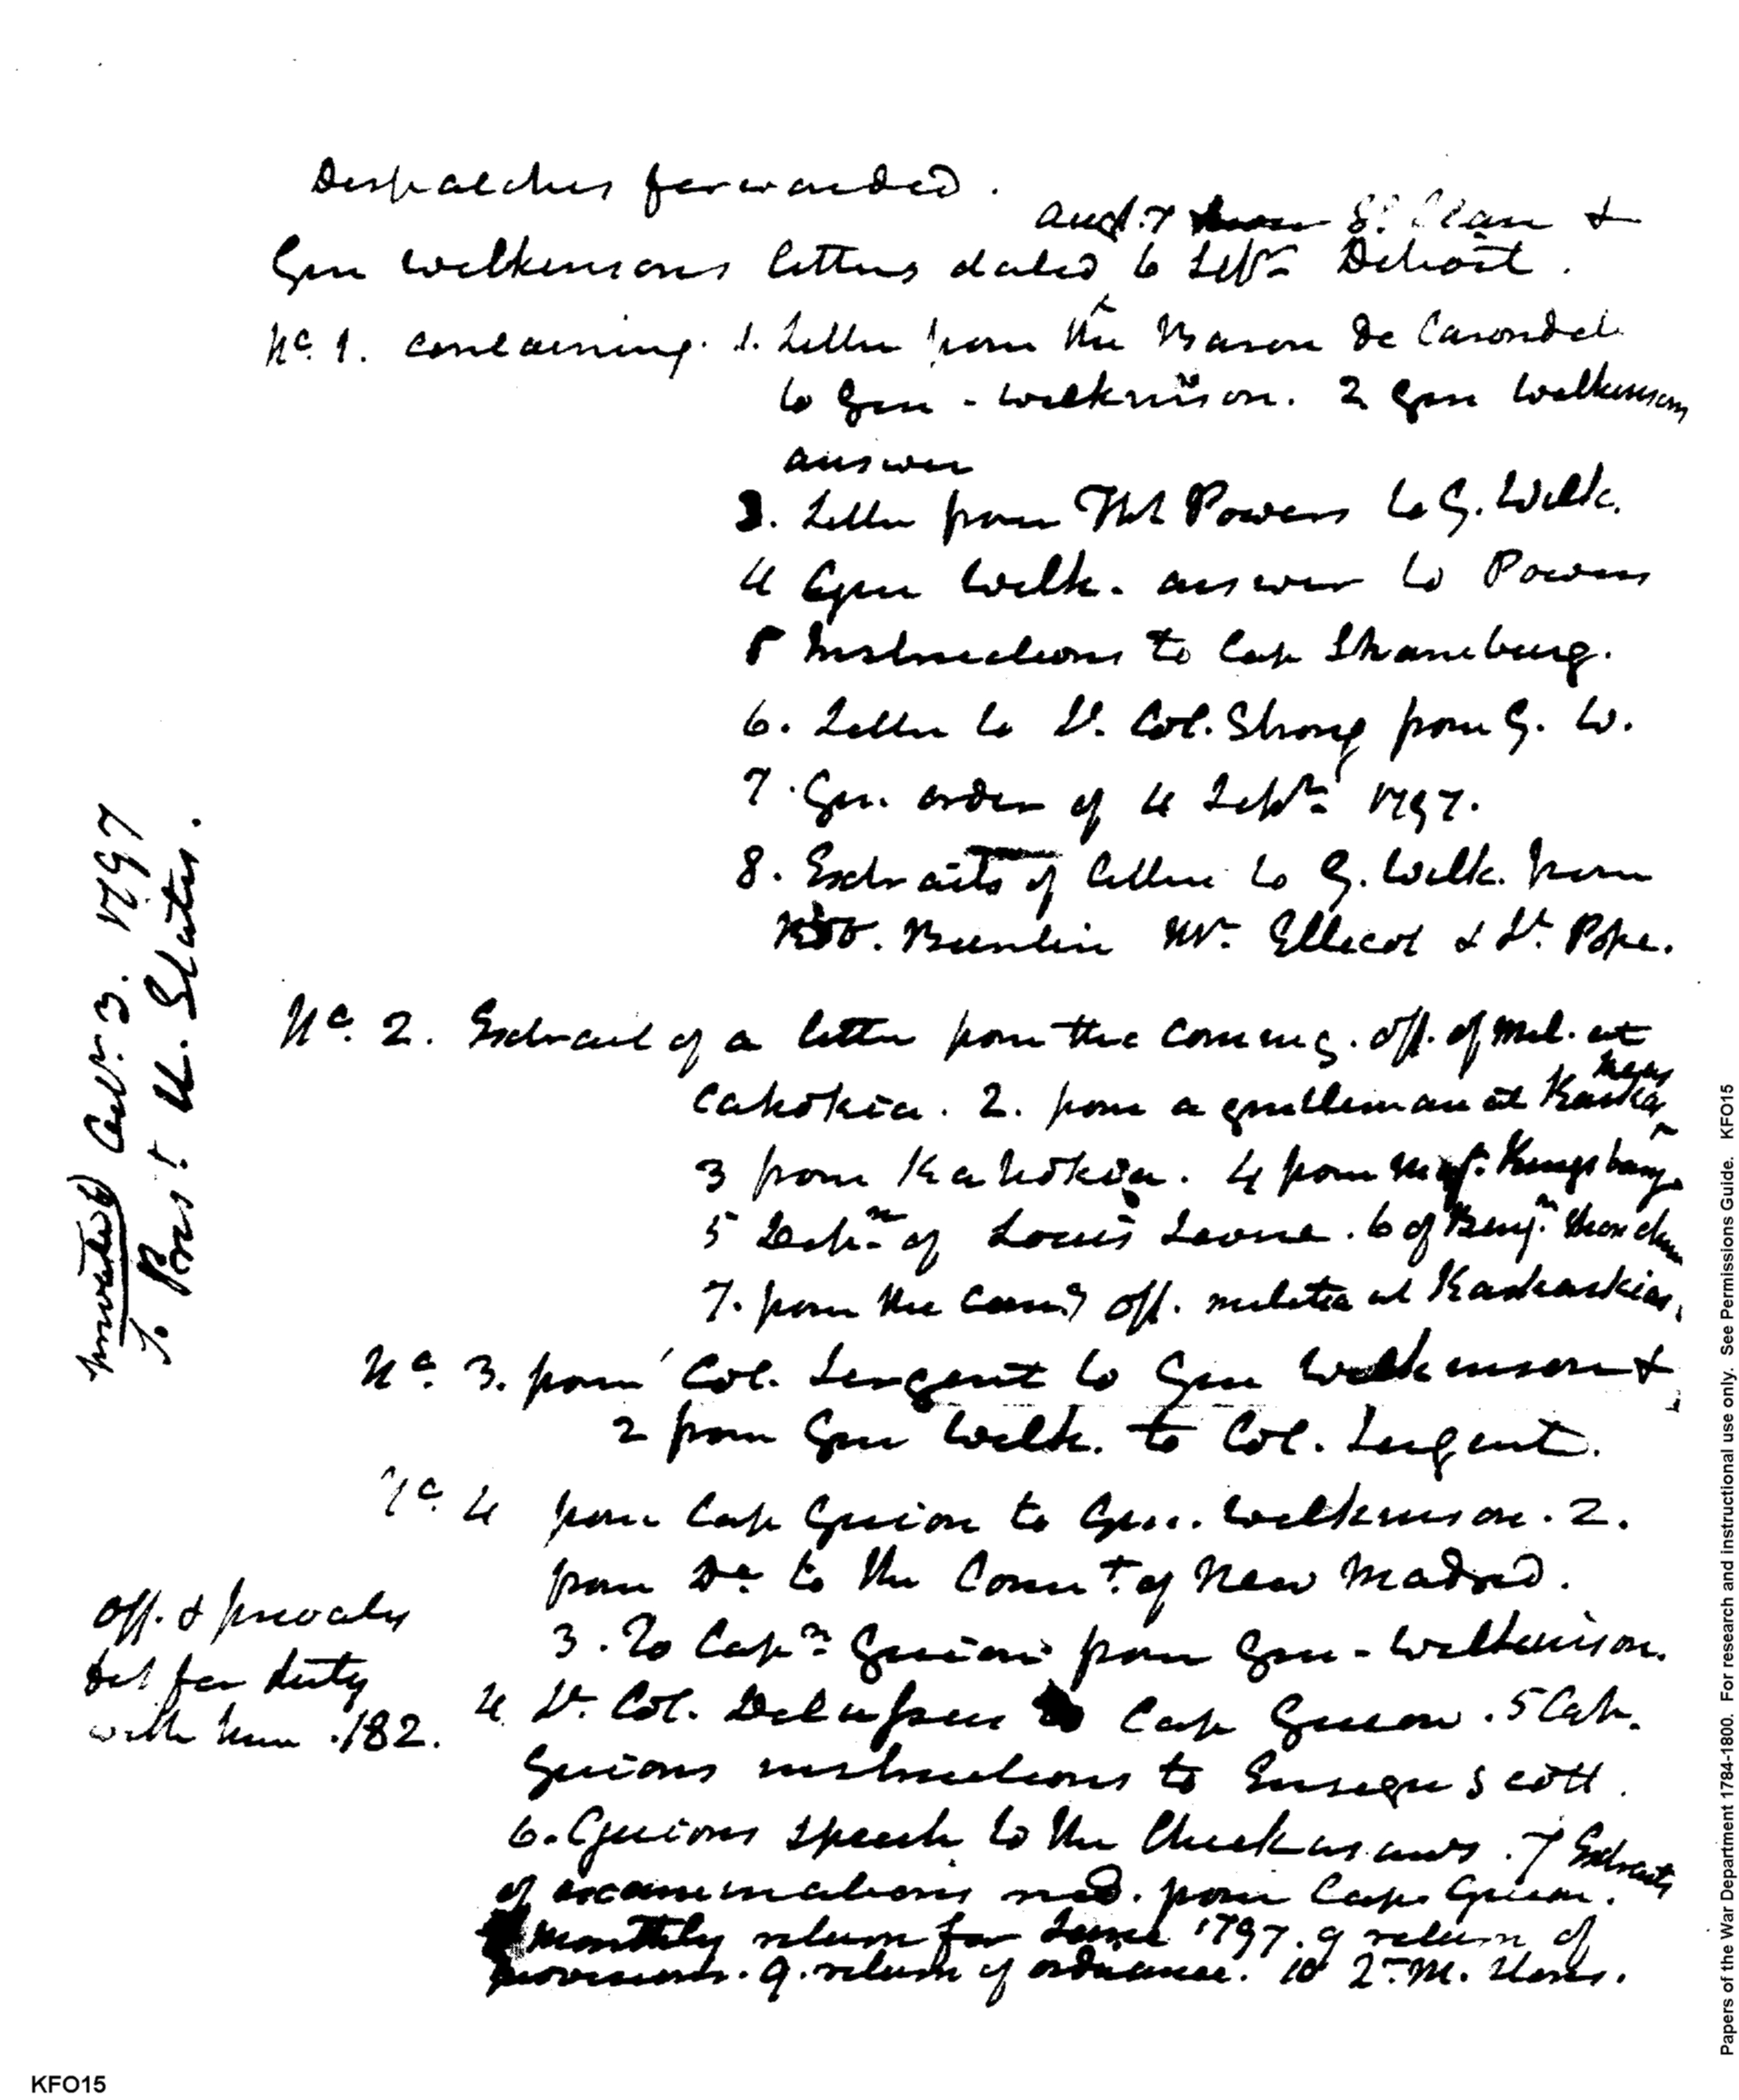 Despatches forwarded.
and 7 St. Clair &
Gen Wilkinsons letters dated 6 Sepr Detroit.
No. 1. containing. 1. Letter from the Baron De Carondel
to Gen - Wilkinson. 2 Gen Wilkinsons
answer
3. Letter from Ths Powers to G. Wilk.
4 Gen Wilk. answer to Powers
5 Instructions to Cap Shaneburg.
6. Letter to Lt. Col. Strong from G. W.
7. Gen. order of 4 Septr 1797.
8. Extracts of letters to G. Wilk. from
Buntin Mr. Ellecot & Lt. Pope.
No. 2. Extract of a letter from the Commg. off. of Mil. at
Cahokia. 2. from a gentleman at Kaskas
3 from Kahokia. 4 from Kingsbury.
5 Depn. of Louis Leone. 6 of Benjn.
7. from the Comg off. militia at Kaskaskias.
No. 3. from Col. Sergent to Gen Wilkinson &
2 from Gen Wilk. to Col. Sergent.
No. 4 from Cap Guion to Gen. Wilkinson. 2.
from Do. to the Comt. of New Madrid.
3. To Capn Guion from Gen - Wilkinson.
4 Lt. Col. Delassus Cap Guion. 5 Cap.
Guions instructions to Ensign Scott.
6. Guions speech to the Chickasaws. 7 Extracts
of examinations recd. from Cap Guion.
Monthly return for June 1797. 9 return of
provisions. 9. return of ordnance. 10 2r. M. Stores.
off. & privates
det for duty
with him. 182.
Octr. 3. 1797
To Prest U. States.
Papers of the War Department 1784-1800. For research and instructional use only. See Permissions Guide. KFO15
KFO15